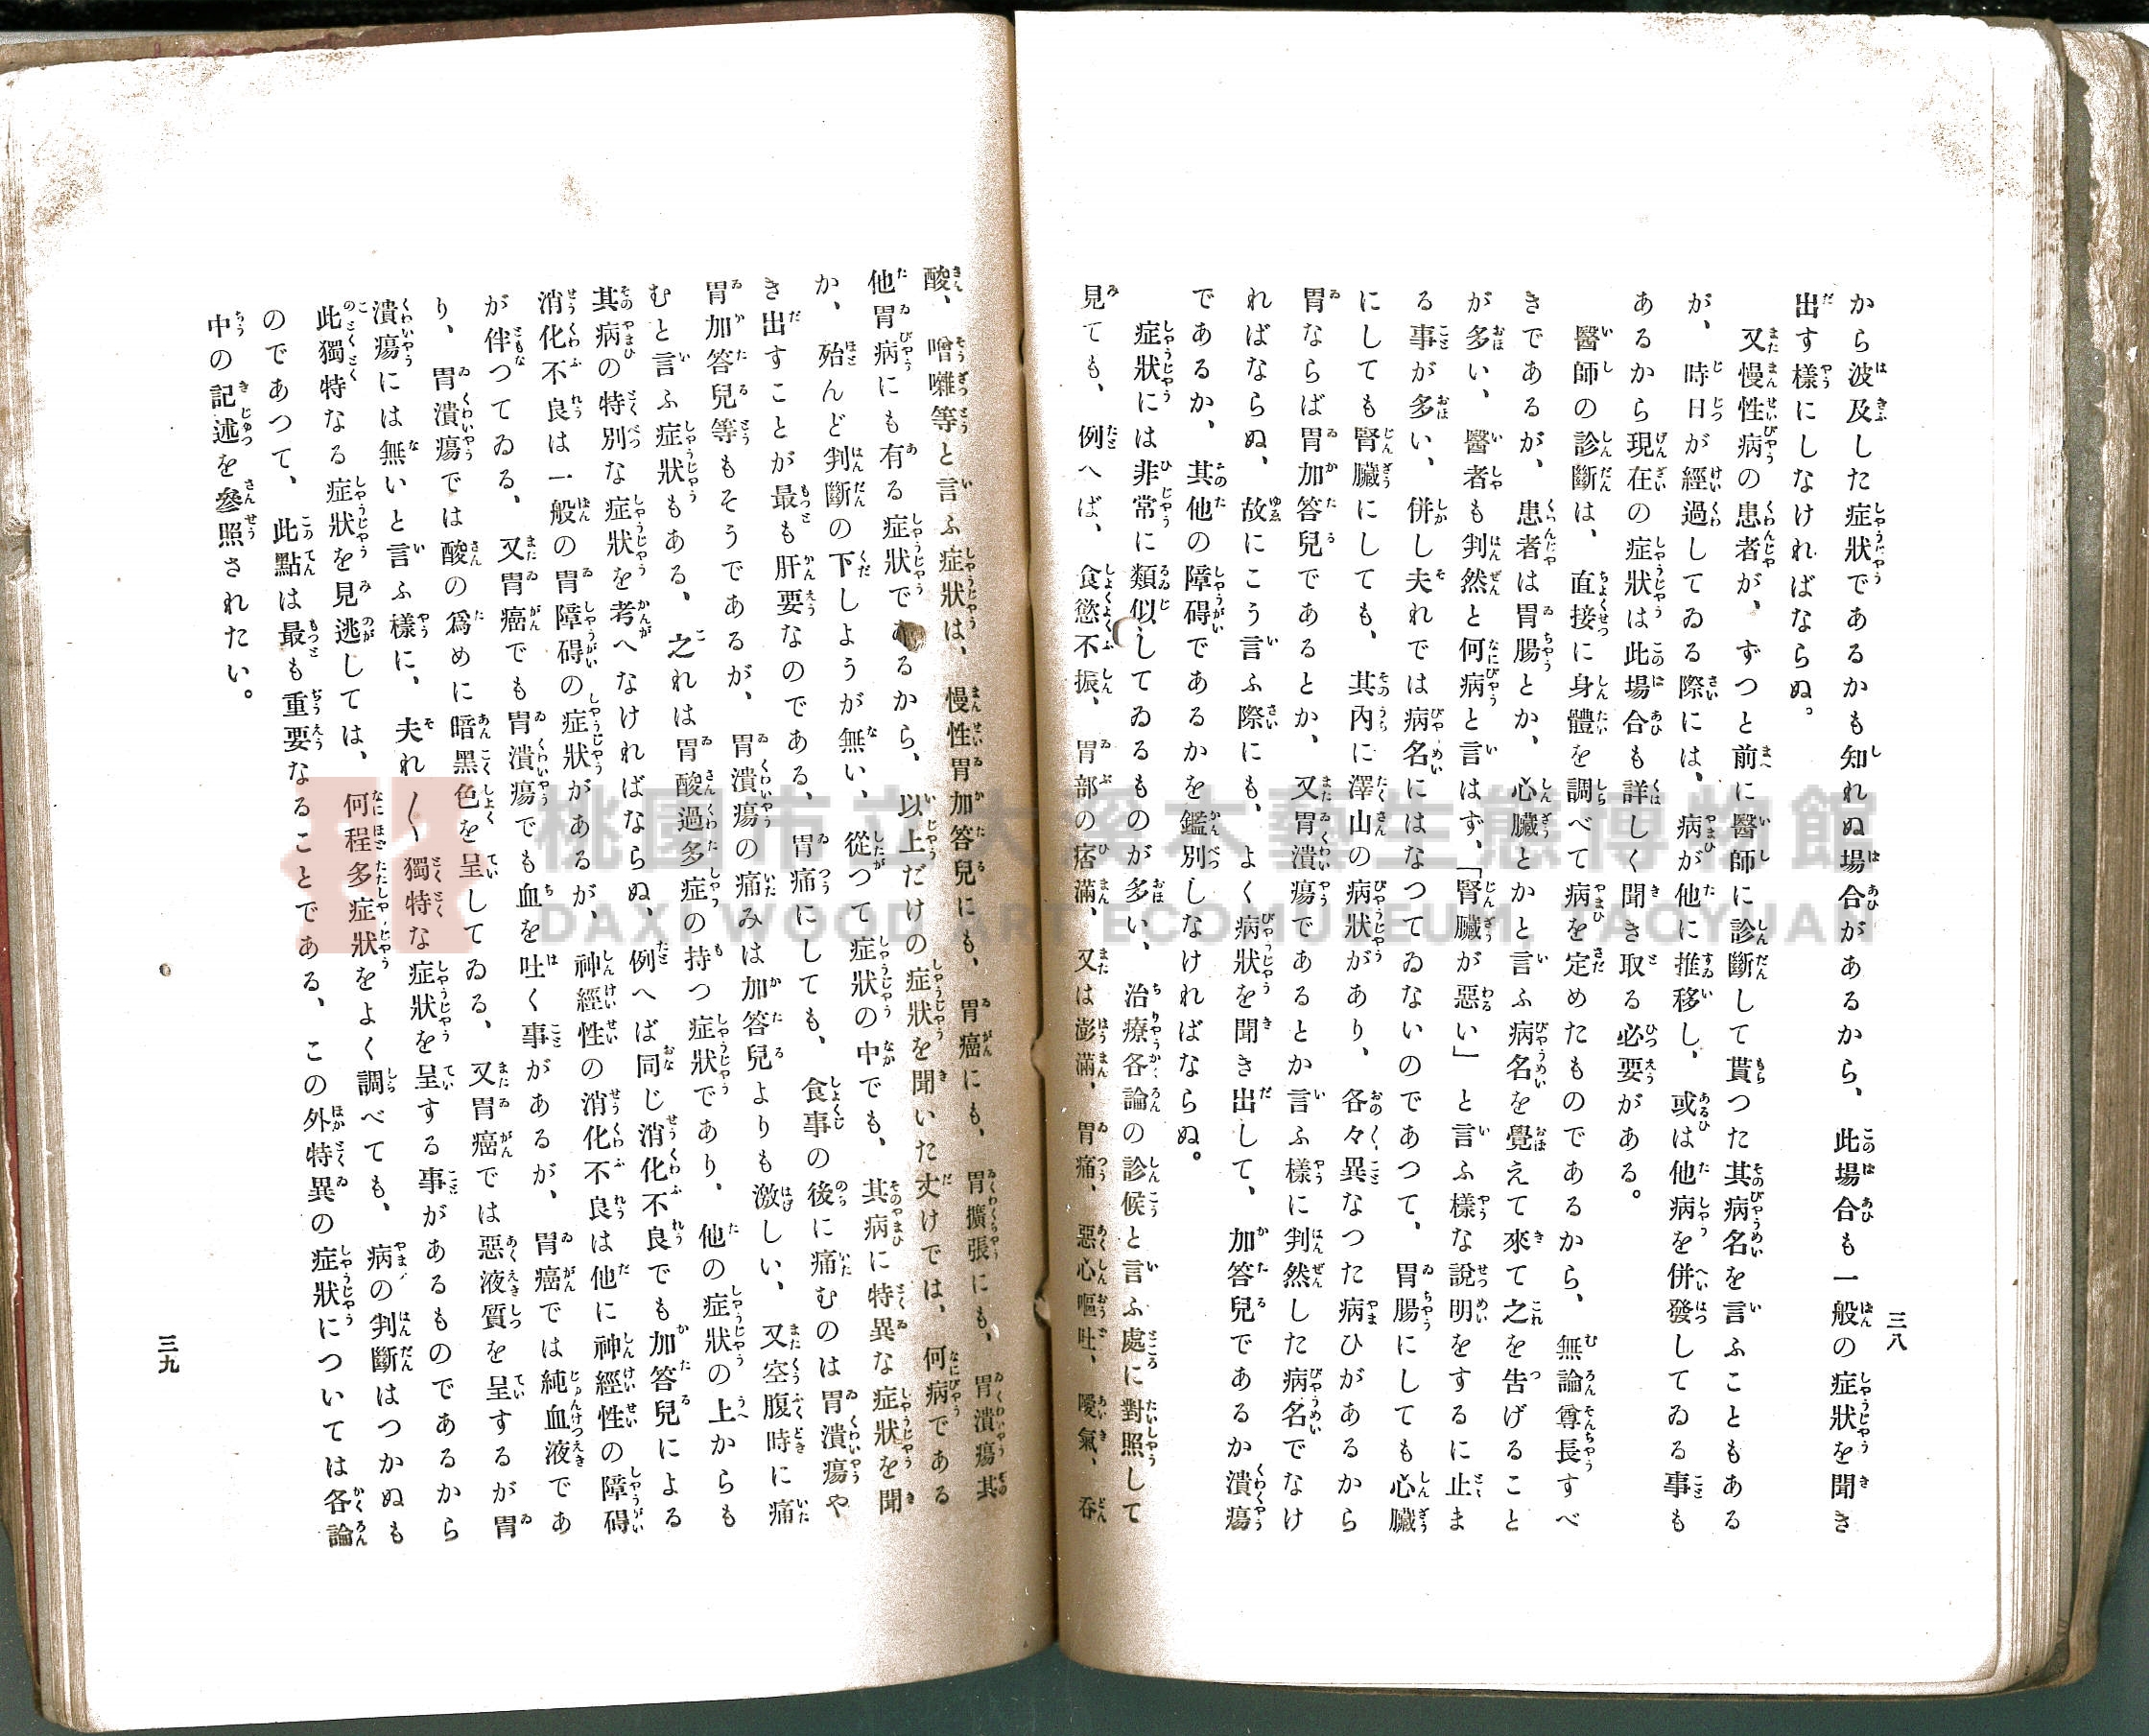 三八
から波及した症狀であるかも知れぬ場合があるから、此場合も一般の症狀を聞き
出す樣にしなければならぬ。
又慢性病の患者が、ずつと前に醫師に診斷して貰つた其病名を言ふこともある
が、時日が經過してゐる際には、病が他に推移し、或は他病を併發してゐる事も
あるから現在の症狀は此場合も詳しく聞き取る必要がある。
醫師の診斷は、直接に身體を調べて病を定めたものであるから、無論尊長すべ
きであるが、患者は胃腸とか、心臟とかと言ふ病名を覺えて來て之を告げること
が多い、醫者も判然と何病と言はず、「腎臟が惡い」と言ふ樣な說明をするに止ま
る事が多い、併し夫れでは病名にはなつてゐないのであつて、胃腸にしても心臟
にしても腎臟にしても、其內に澤山の病狀があり、各々異なつた病ひがあるから
胃ならば胃加答兒であるとか、又胃潰瘍であるとか言ふ樣に判然した病名でなけ
ればならぬ、故にこう言ふ際にも、よく病狀を聞き出して、加答兒であるか潰瘍
であるか、其他の障碍であるかを鑑別しなければならぬ。
症狀には非常に類似してゐるものが多い、治療各論の診候と言ふ處に對照して
見ても、例へば、食慾不振、胃部の痞滿、又は澎滿、胃痛、惡心嘔吐、噯氣、吞
酸、噌囃等と言ふ症狀は、慢性胃加答兒にも、胃癌にも、胃擴張にも、胃潰瘍其
他胃病にも有る症狀であるから、以上だけの症狀を聞いた丈けでは、何病である
か、殆んど判斷の下しようが無い、從つて症狀の中でも、其病に特異な症狀を聞
き出すことが最も肝要なのである、胃痛にしても、食事の後に痛むのは胃潰瘍や
胃加答兒等もそうであるが、胃潰瘍の痛みは加答兒よりも激しい、又空腹時に痛
むと言ふ症狀もある、之れは胃酸過多症の持つ症狀であり、他の症狀の上からも
其病の特別な症狀を考へなければならぬ、例へば同じ消化不良でも加答兒による
消化不良は一般の胃障碍の症狀があるが、神經性の消化不良は他に神經性の障碍
が伴つてゐる、又胃癌でも胃潰瘍でも血を吐く事があるが、胃癌では純血液であ
り、胃潰瘍では酸の爲めに暗黑色を呈してゐる、又胃癌では惡液質を呈するが胃
潰瘍には無いと言ふ樣に、夫れ〱獨特な症狀を呈する事があるものであるから
此獨特なる症狀を見逃しては、何程多症狀をよく調べても、病の判斷はつかぬも
のであつて、此點は最も重要なることである、この外特異の症狀については各論
中の記述を參照されたい。
三九
桃園市立大溪木藝生態博物館
DAXI WOOD ART ECOMUSEUM, TAOYUAN